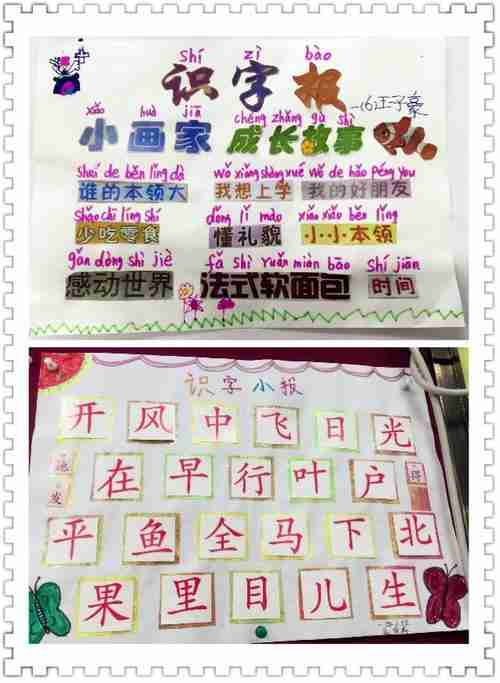 shí zì bào
识字报
一(6)
xiǎo huà jiā chéng zhǎng gù shì
小画家 成长故事
shuí de běn lǐng dà wǒ xiǎng shàng xué wǒ de hǎo péng you
谁的本领大 我想上学 我的好朋友
shǎo chī líng shí dǒng lǐ mào xiǎo xiǎo běn lǐng
少吃零食 懂礼貌 小小本领
gǎn dòng shì jiè fǎ shì ruǎn miàn bāo shí jiān
感动世界 法式软面包 时间
识字小报
开风中飞日光
在早行叶户
发
得
平鱼全马下北
果里目儿生